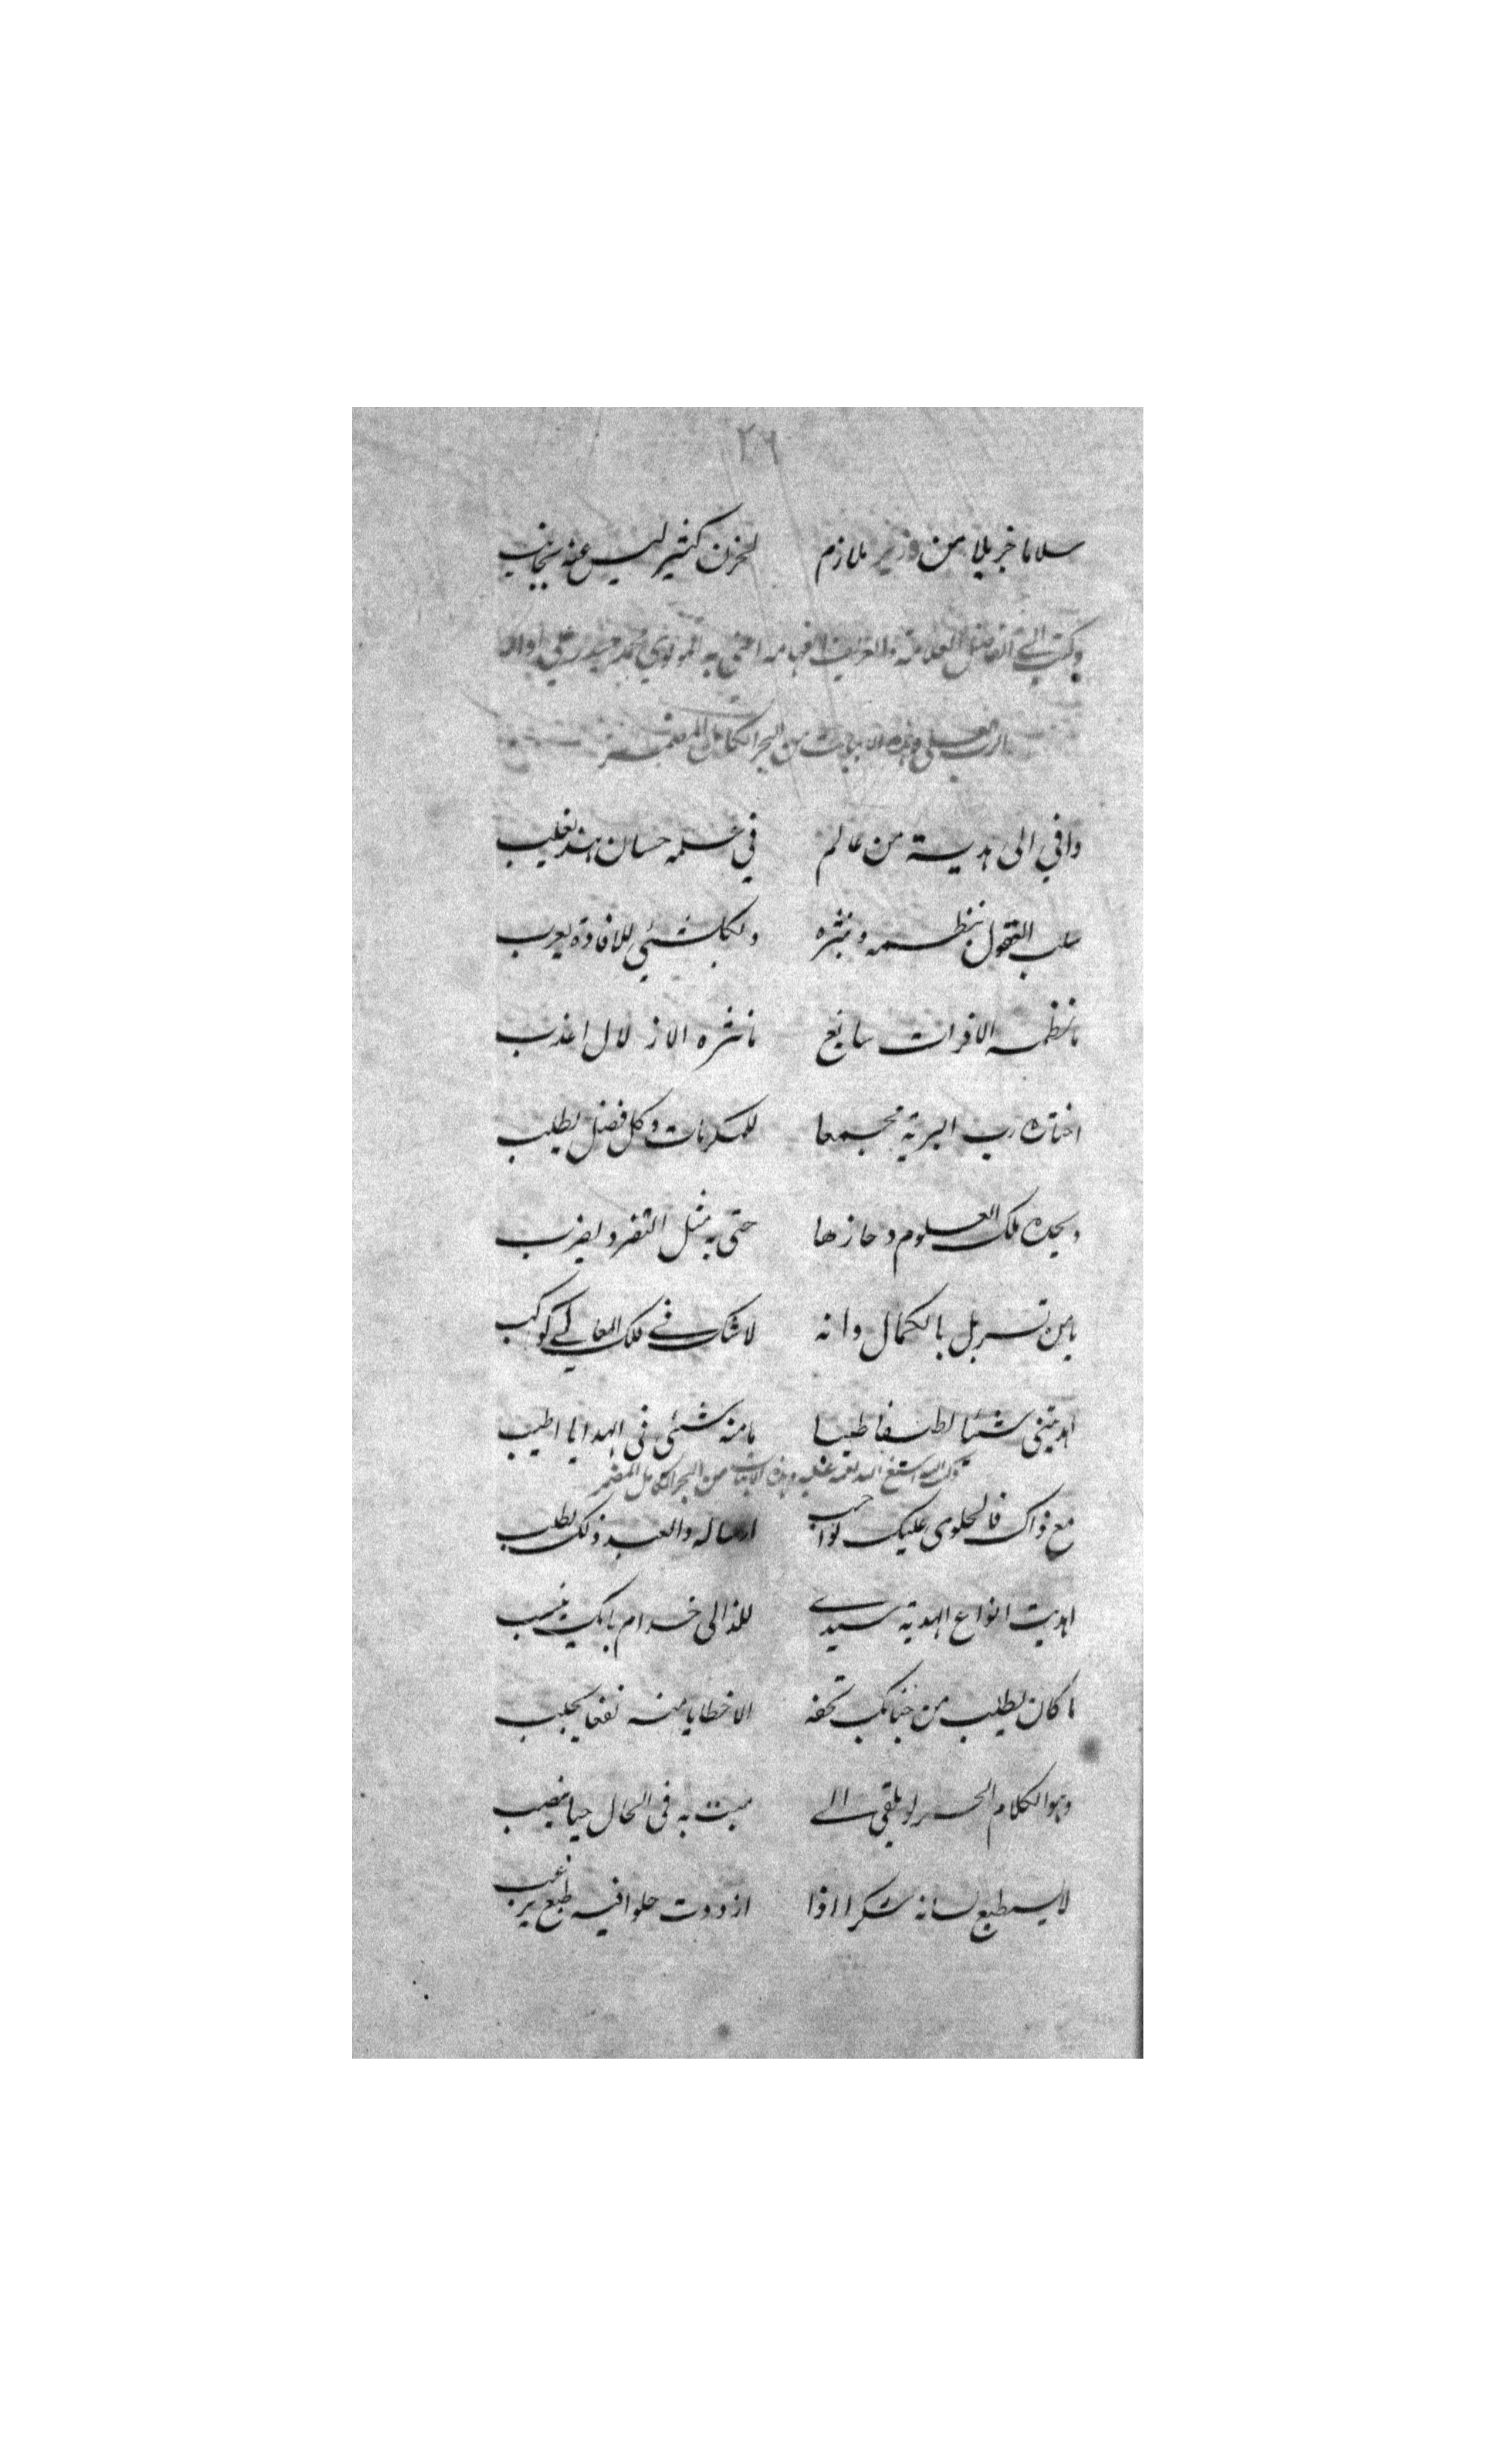 ٢٦
سلاما جزيلا من وزير ملازم لحزن كثير ليس عنه يجانب
وكتب الى الفاضل العلامة والعريف الفهامه اعنى به المولوي محمد حيدر علي
الرب العلي وهذه الابيات من البحر الكامل المضمر
وافي الى هدية من عالم في علمه حسان هند يغلب
سلب العقول بنظمه ونثره ولكل شئي للافادة يعرب
ما نظمه الا فرات سايغ ما نثره الا زلال اعذب
اختاره رب البرية مجمعا للمكرمات وكل فضل يطلب
وبجده ملك العلوم وحازها حتى به مثل التفرد يضرب
يامن تسربل بالكمال وانه لاشك في فلك المعالي كوكب
اهديتني شيئا لطيفا طيبا ما منه شئي في الهدايا اطيب
وكتب اليه اسبغ الله نعمه عليه وهذه الابيات من البحر الكامل المضمر
مع ذاك فالحلوى عليك لواجب ارساله والعبد ذلك يطلب
اهديت انواع الهدية سيدي للذ الى خدام بابك ينسب
ما كان يطلب من جنابك تحفه الا خطايا منه نفعا يجلب
وهو الكلام الحر لو يلقى الى ميت به في الحال حيا يصيب
لايسطيع لسانه شكرا اذا ازددت حلوا فيه طبع يرغب